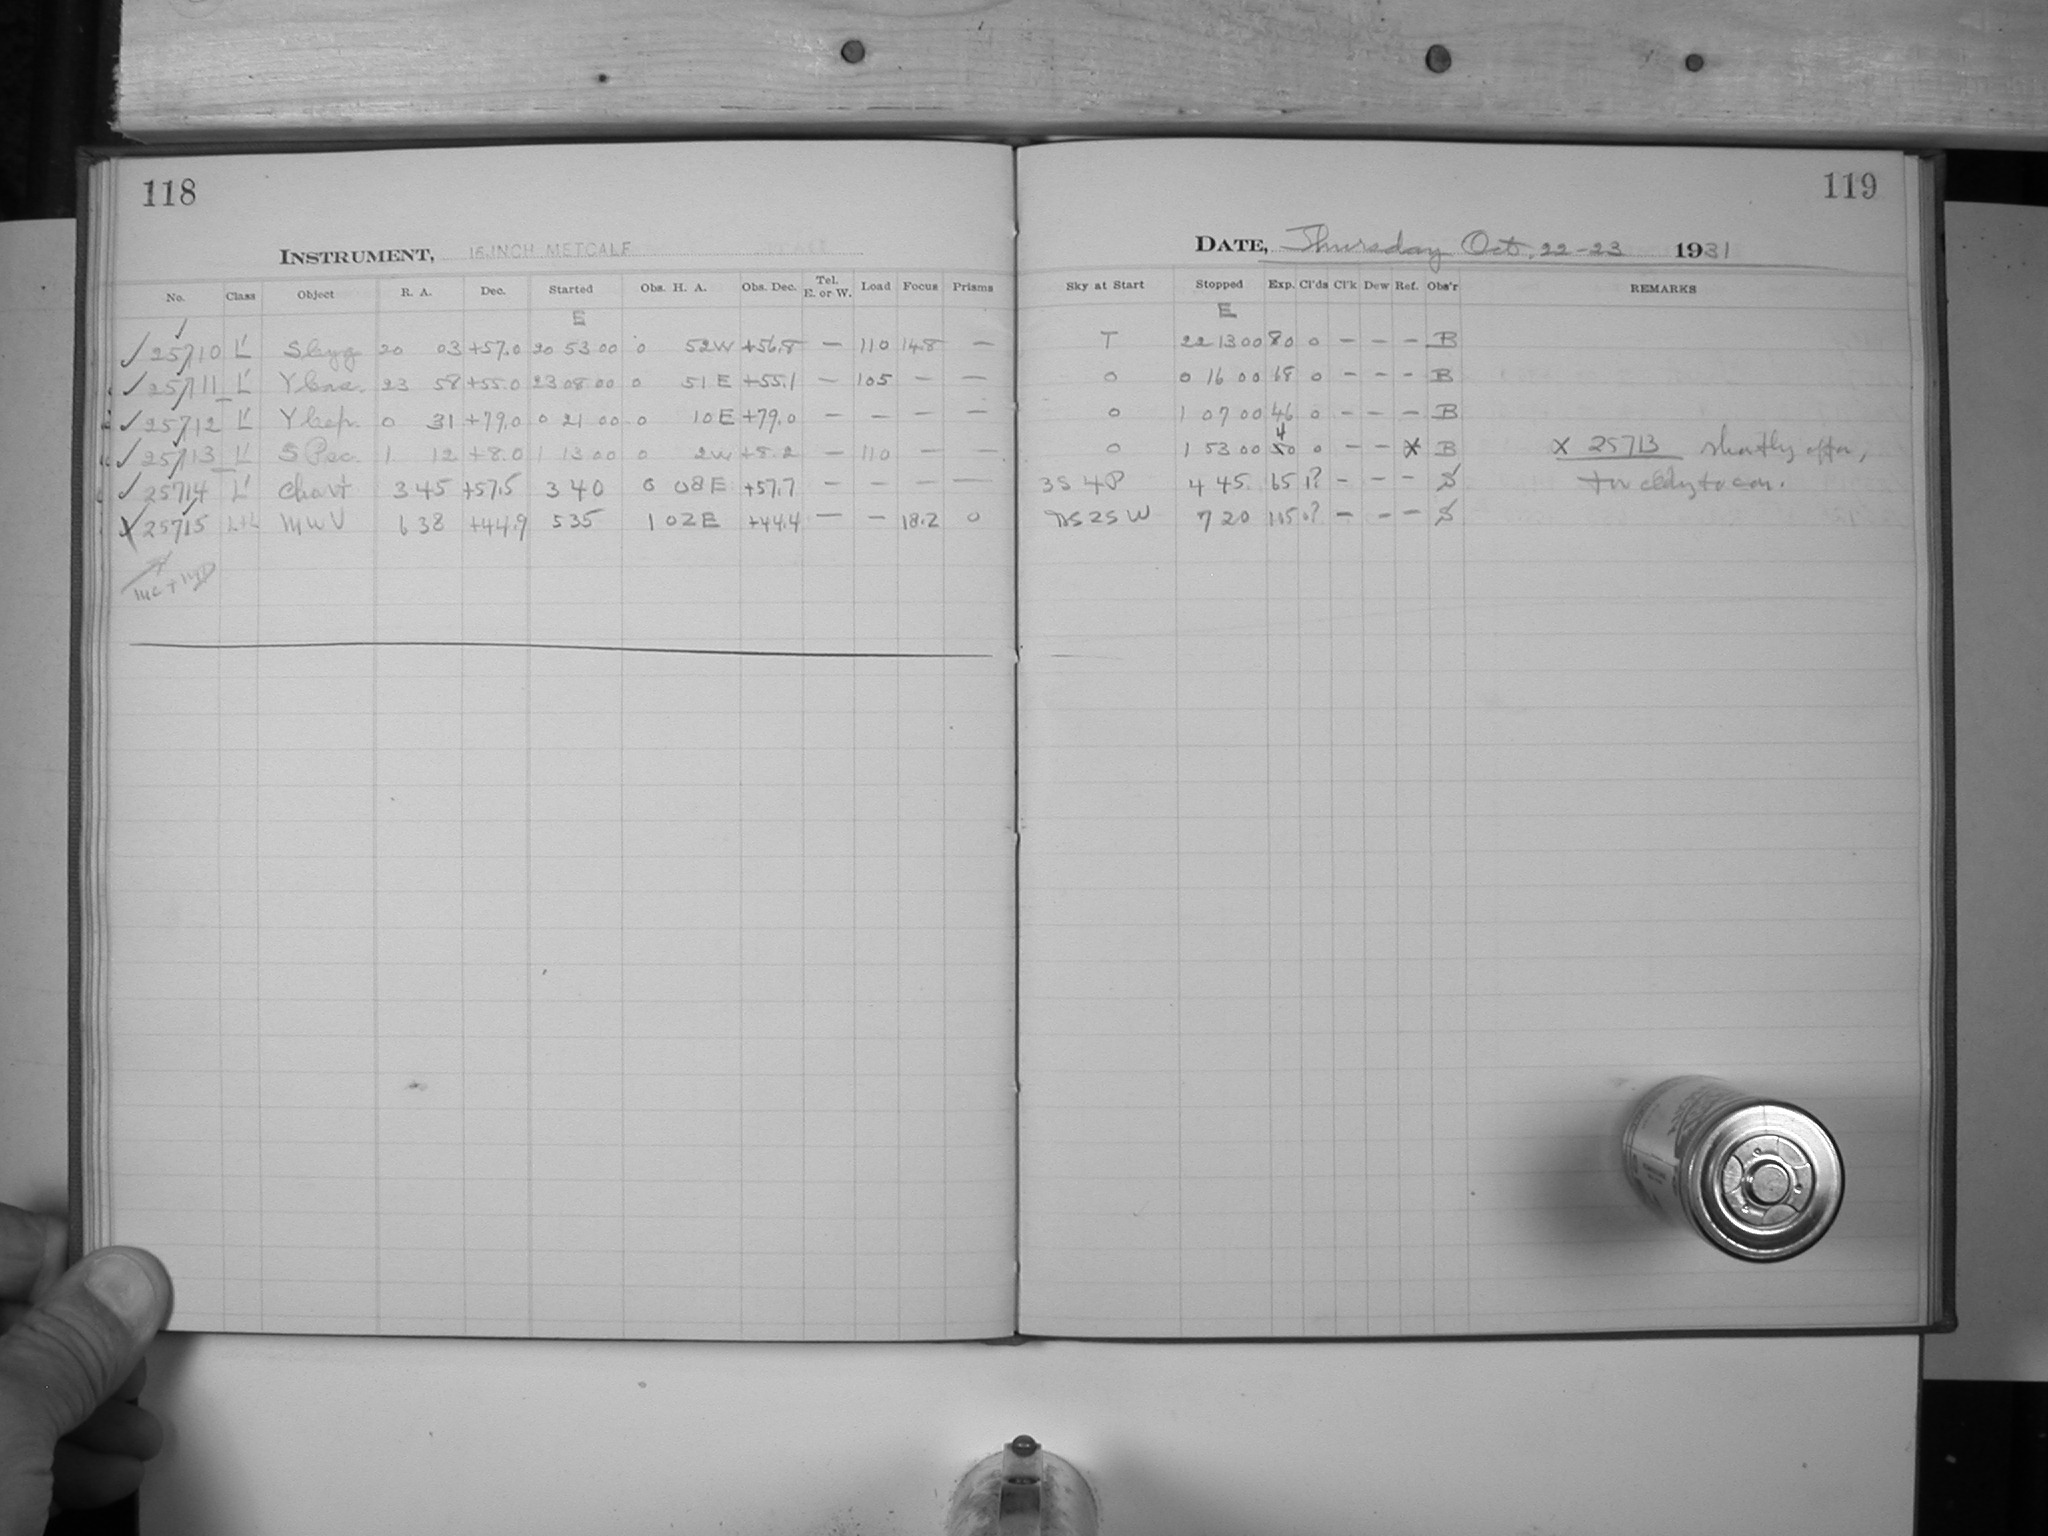 118
INSTRUMENT, 16 INCH METCALF
No. Class Object R. A. Dec. Started Obs. H. A. Obs. Dec. Tel. E. or W. Load Focus Prisms
E
✓ 25710 L' S Cyg 20 03 +57.0 20 53 00 0 52W +56.8 — 110 14.8 —
✓ 25711 L' Y Cas. 23 58 +55.0 23 08 00 0 51 E +55.1 — 105 — —
✓ 25712 L' Y Cep. 0 31 +79.0 0 21 00 0 10E +79.0 — — — —
✓ 25713 L' S Psc. 1 12 +8.0 1 13 00 0 2W +8.2 — 110 — —
✓ 25714 L' Chart 3 45 +57.5 3 40 0 08E +57.7 — — — —
25715 MWV 6 38 +44.9 535 1 02E +44.4 — — 18.2 0
119
DATE, Thursday Oct. 22-23 1931
Sky at Start Stopped Exp. Cl'ds Cl'k Dew Ref. Obs'r REMARKS
E
T 22 13 00 80 0 — — — B
0 0 16 00 68 0 — — — B
0 1 07 00 46 0 — — — B
0 1 53 00 40 0 — — X B X 25713 shortly after,
3S 4P 4 45 65 1? — — — S too cldy to con.
2S W 7 20 105 0? — — — S